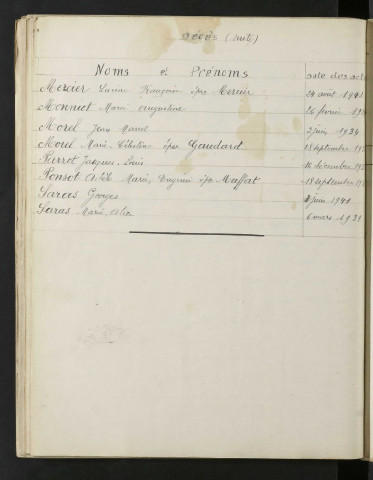 Décès (suite)
Noms et Prénoms Date des actes
Mercier Françoise épse Mercier 24 août 1941
Monniet Marie Augustine 26 février 19
Morel Jean Marcel 2 juin 1934
Morel Marie épse Gaudard 18 septembre 19
Pierrot Jacques Louis 16 décembre 19
Ponsot Adèle Marie, épse Maffat 18 septembre 19
Saras Georges juin 1940
Saras Marie 6 mars 1931